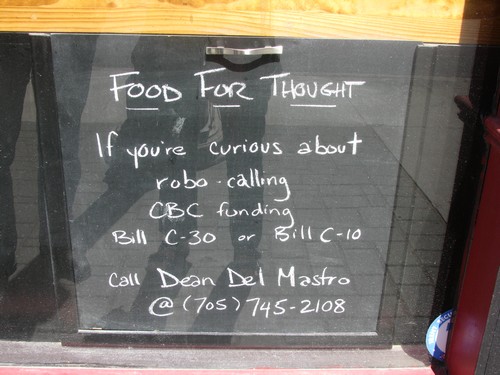 FOOD FOR THOUGHT
If you're curious about
robo-calling
CBC funding
Bill C-30 or Bill C-10
Call Dean Del Mastro
@ (705) 745-2108